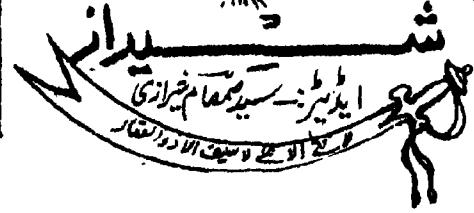 شیراز
ایڈیٹر:۔ سید صمصام شیرازی
لا فتےٰ الا علے لا سیف الا ذوالفقار